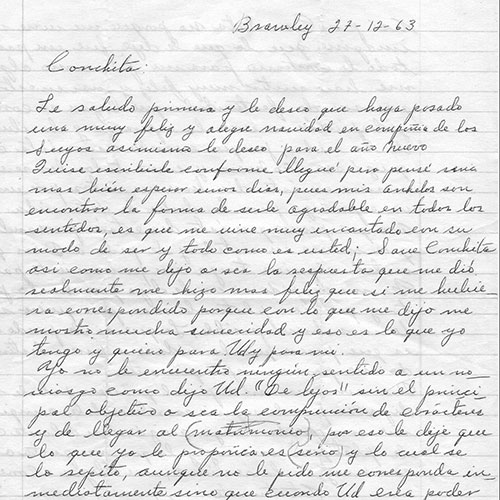 Brawley 27-12-63
Conchita:
Le saludo primera y le deseo que haya pasado
una muy feliz y alegre navidad en compañia de los
Suyos asimismo le deseo para el año nuevo
Quise escribirle conforme llegué pero pensé sería
mas bien esperar unos dias, pues mis anhelos son
encontrar la forma de serle agradable en todos los
sentidos, es que me vine muy encantado con su
modo de ser y todo como es usted; Save Conchita
asi como me dejo o sea la respuesta que me dió
realmente me hizo mas feliz que si me hubie-
ra correspondido porque con lo que me dijo me
mostro mucha sinceridad y eso es lo que yo
tengo y quiero para Ud y para mi.
Yo no le encuentro ningun sentido a un no-
viasgo como dijo Ud "De lejos" sin el princi
pal objetivo o sea la comprención de carácteres
y de llegar al (matrimonio), por eso le dije que
lo que yo le proponía es (serio) y lo cual se
lo repito, aunque no le pido me corresponda in-
mediatamente sino que cuando Ud crea poder